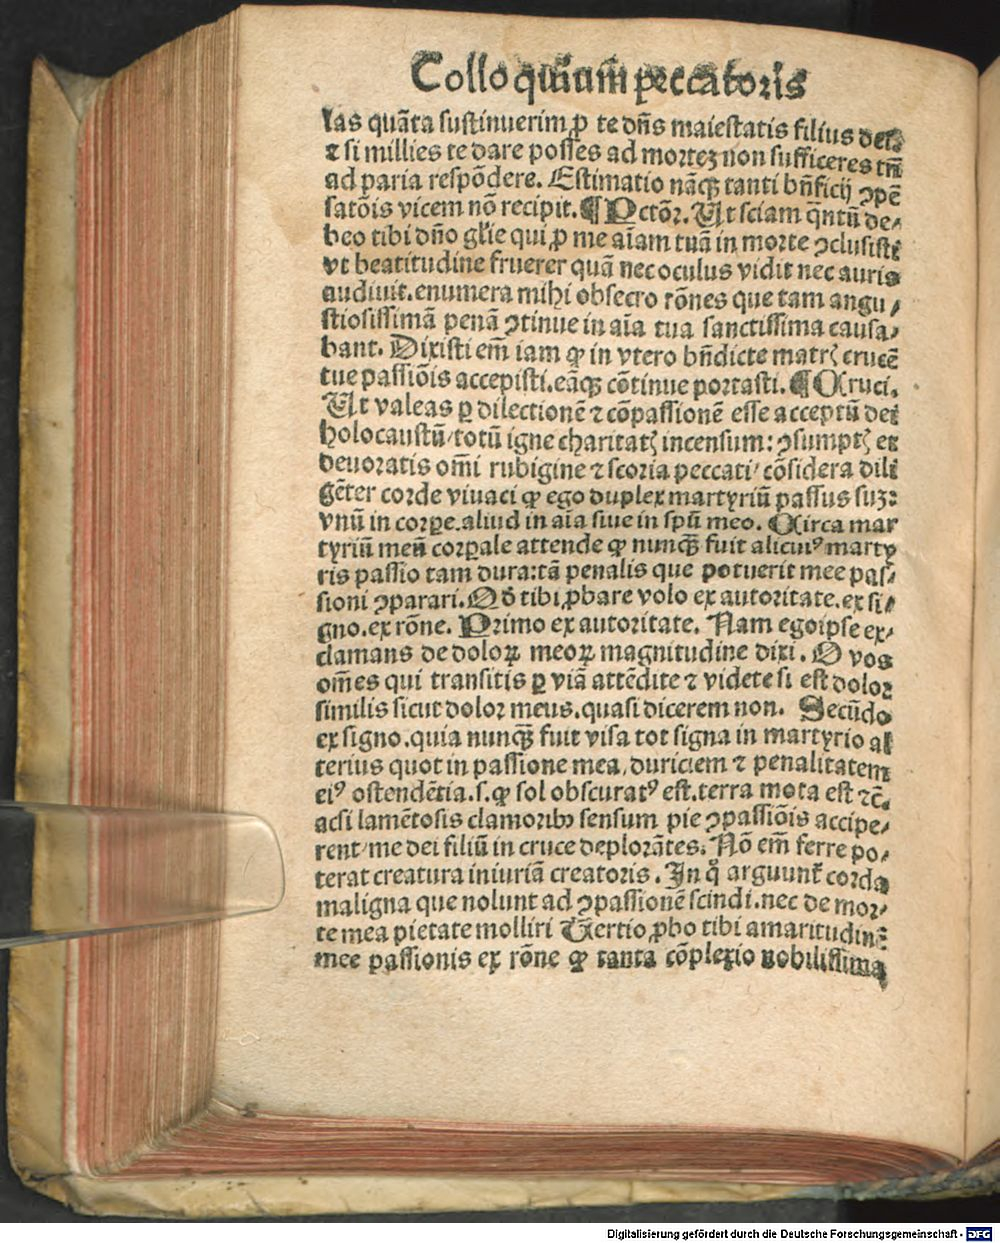 Colloquiũm peccatoris
las quãta sustinuerim ꝓ te dñs maiestatis filius dei.
⁊ si millies te dare posses ad morteʒ non sufficeres tñ
ad paria respõdere. Estimatio nãqꝫ tanti bñficij ꝯpẽ
satõis vicem nõ recipit. ¶ Pctõr. Ut sciam q̃ntũ de⸗
beo tibi dño gl'ie qui ꝓ me aĩam tuã in morte ꝯclusisti
vt beatitudine fruerer quã nec oculus vidit nec auris
audiuit. enumera mihi obsecro rõnes que tam angu⸗
stiosissimã penã ꝯtinue in aĩa tua sanctissima causa⸗
bant. Dixisti em̃ iam ꝙ in vtero bñdicte matrꝭ crucẽ
tue passiõis accepisti. eãqꝫ cõtinue portasti. ¶ Cruci.
Ut valeas ꝑ dilectionẽ ⁊ cõpassionẽ esse acceptũ dei
holocaustũ/ totũ igne charitatꝭ incensum: ꝯsumptꝭ et
deuoratis om̃i rubigine ⁊ scoria peccati/ cõsidera dili
gẽter corde viuaci ꝙ ego duplex martyriũ passus suʒ:
vnũ in corꝑe. aliud in aĩa siue in spũ meo. Circa mar
tyriũ meũ corꝑale attende ꝙ nunqꝫ̃ fuit alicuiꝰ marty
ris passio tam dura: tã penalis que potuerit mee pas⸗
sioni ꝯparari. Qd̃ tibi ꝓbare volo ex autoritate. ex si⸗
gno. ex rõne. Primo ex autoritate. Nam egoipse ex⸗
clamans de doloꝝ meoꝝ magnitudine dixi. O vos
om̃es qui transitis ꝑ viã attẽdite ⁊ videte si est dolor
similis sicut dolor meus. quasi dicerem non. Secũdo
ex signo. quia nunqꝫ̃ fuit visa tot signa in martyrio al
terius quot in passione mea, duriciem ⁊ penalitatem
eiꝰ ostendẽtia. s. ꝙ sol obscuratꝰ est. terra mota est ⁊c̃.
acsi lamẽtosis clamoribꝰ sensum pie ꝯpassiõis accipe⸗
rent/ me dei filiũ in cruce deplorãtes. Nõ em̃ ferre po⸗
terat creatura iniuriã creatoris. In q̊ arguunt᷑ corda
maligna que nolunt ad ꝯpassionẽ scindi. nec de mor⸗
te mea pietate molliri Tertio ꝓbo tibi amaritudinẽ
mee passionis ex rõne ꝙ tanta cõplexio nobilissima
Digitalisierung gefördert durch die Deutsche Forschungsgemeinschaft - DFG